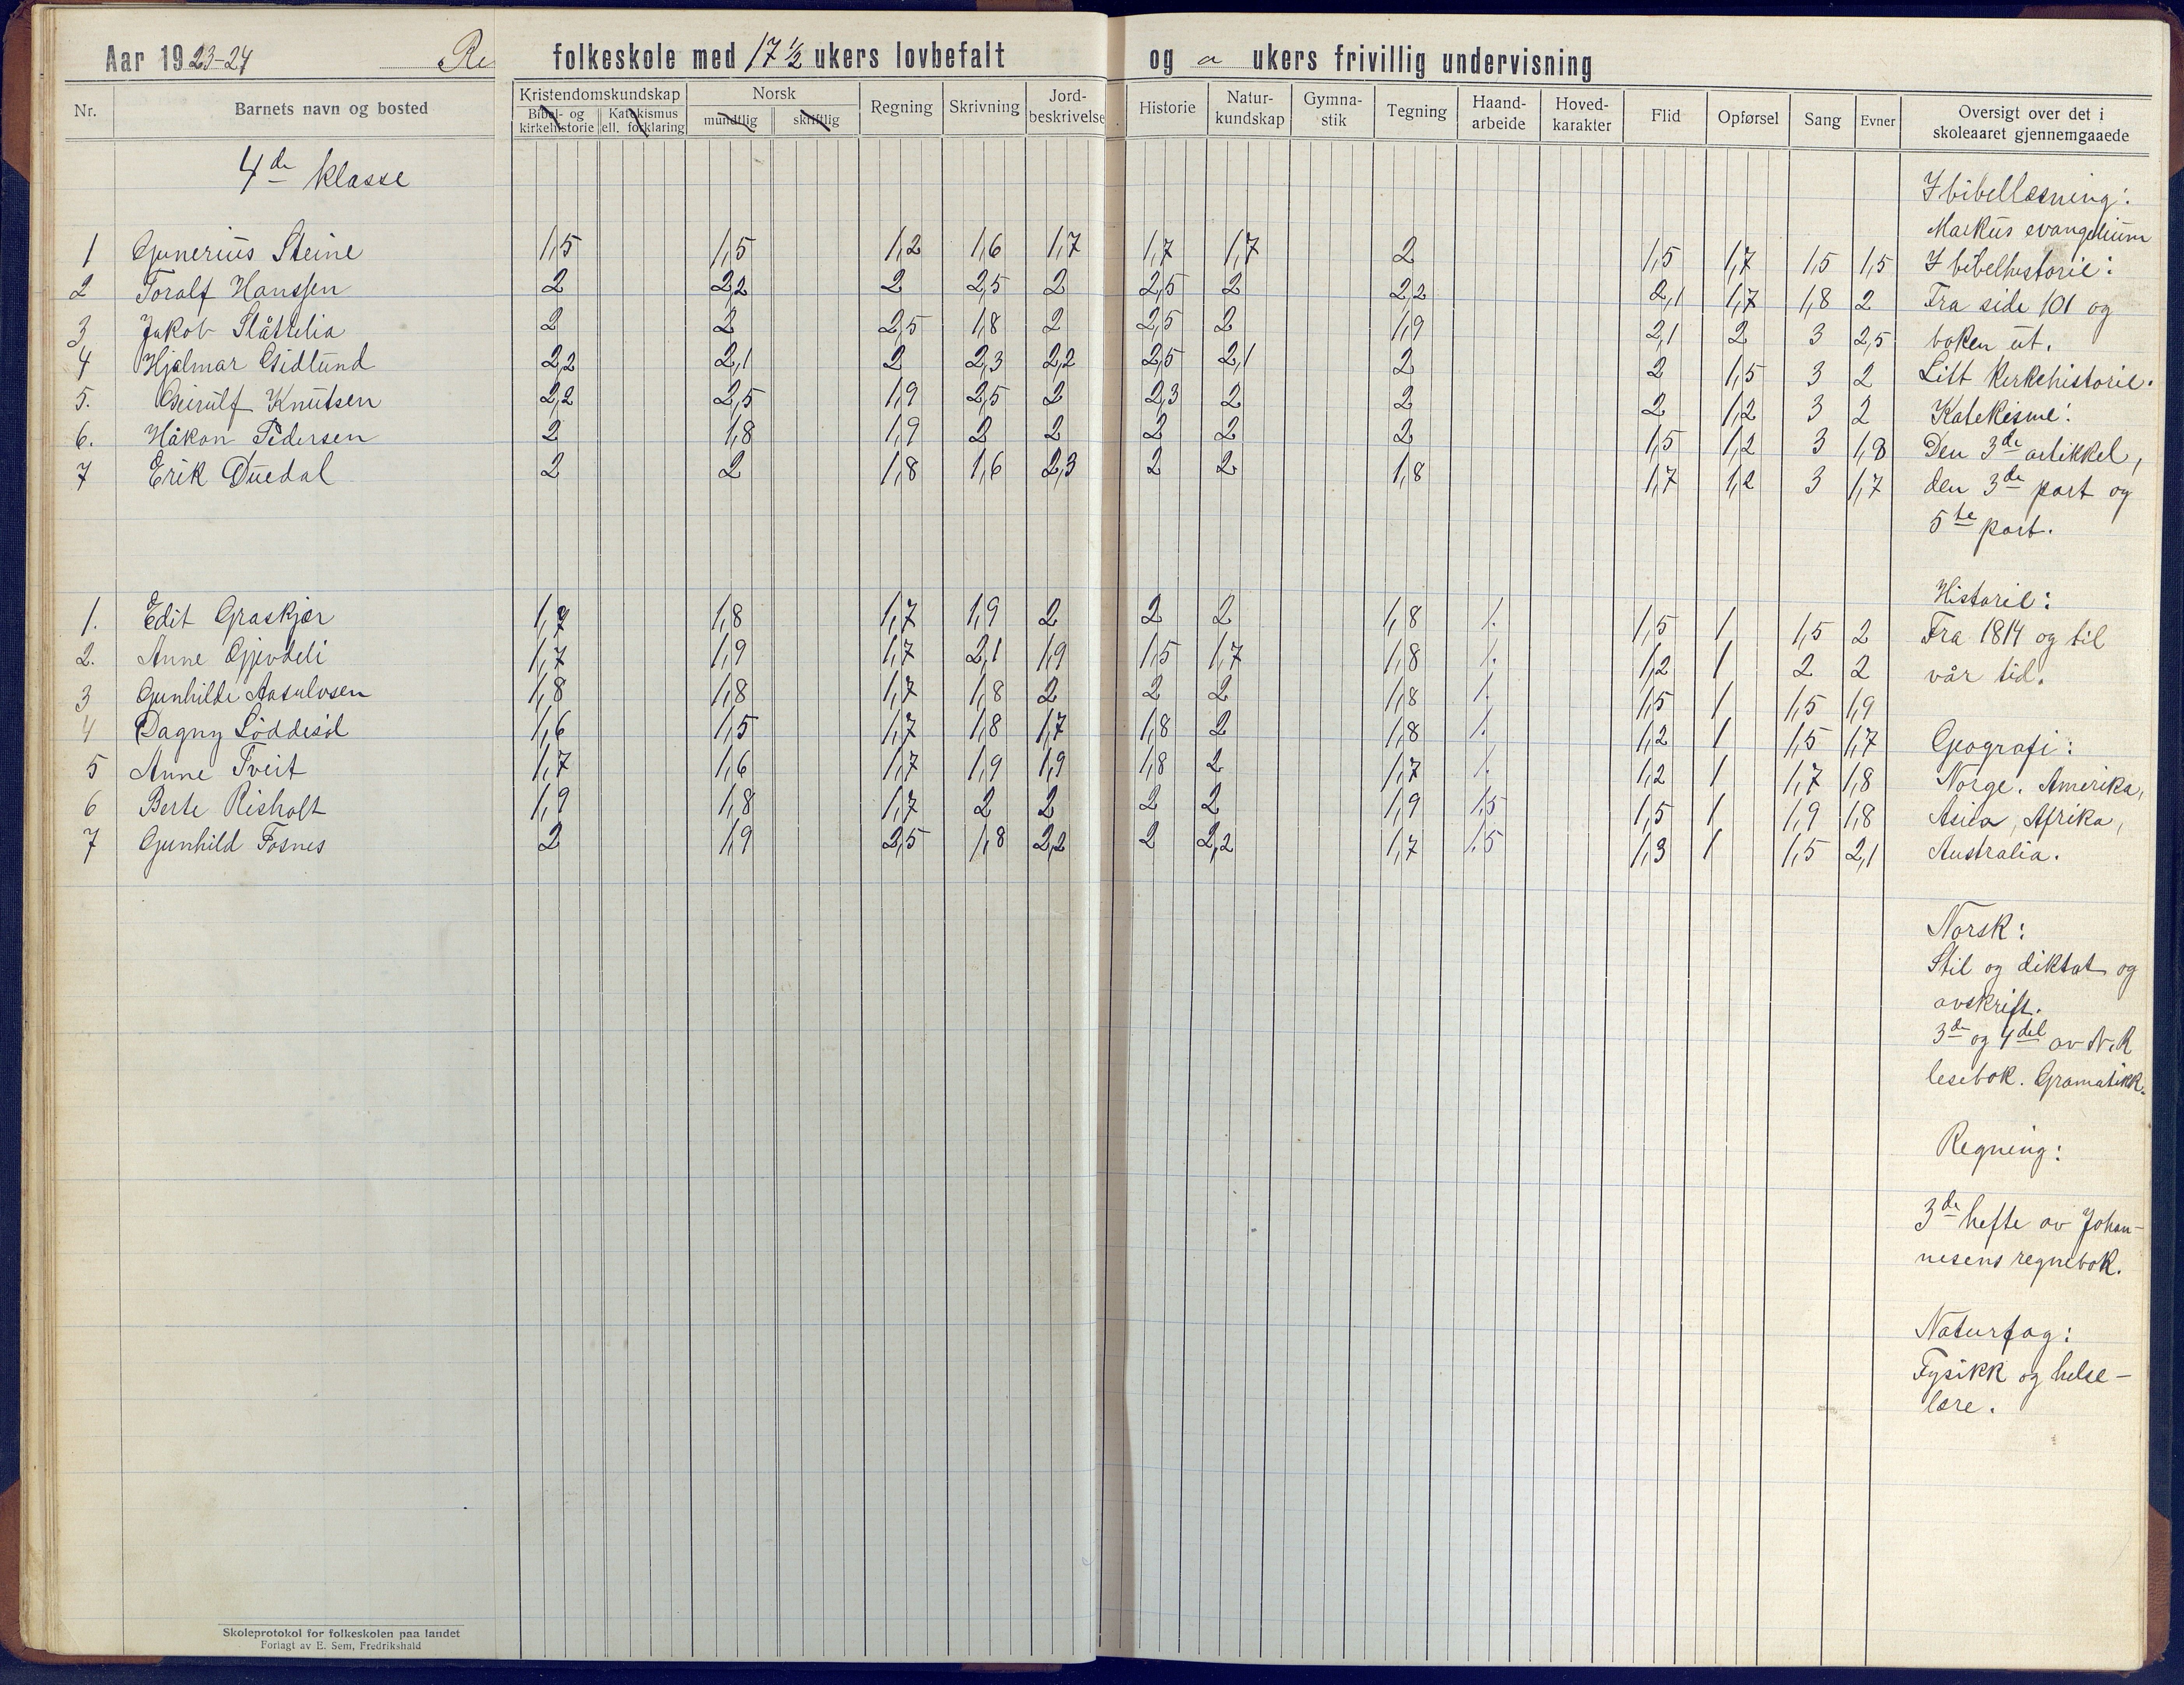 Aar 1923-24 Re folkeskole med 17 ½ ukers lovbefalt og a ukers frivillig undervisning
Nr. Barnets navn og bosted Kristendomskundskap Bibel- og kirkehistorie Katekismus ell. forklaring Norsk mundtlig skriftlig Regning Skrivning Jord-beskrivelse Historie Natur-kundskap Gymna-stik Tegning Haand-arbeide Hoved-karakter Flid Opførsel Sang Evner Oversigt over det i skoleaaret gjennemgaaede
4de klasse
1 Gunerius Steine 1,5 1,5 1,2 1,6 1,7 1,7 1,7 2 1,5 1,7 1,5 1,5
2 Toralf Hanssen 2 2,2 2 2,5 2 2,5 2 2,2 2,1 1,7 1,8 2
3 Jakob Slåttelia 2 2 2,5 1,8 2 2,5 2 1,9 2,1 2 3 2,5
4 Hjalmar Gidlund 2,2 2,1 2 2,3 2,2 2,5 2,1 2 2 1,5 3 2
5. Geirulf Knutsen 2,2 2,5 1,9 2,5 2 2,3 2 2 2 1,2 3 2
6. Håkon Pedersen 2 1,8 1,9 2 2 2 2 2 1,5 1,2 3 1,8
7 Erik Duedal 2 2 1,8 1,6 2,3 2 2 1,8 1,7 1,2 3 1,7
1. Edit Graskjær 1,7 1,8 1,7 1,9 2 2 2 1,8 1. 1,5 1 1,5 2
2. Anne Gjevdeli 1,7 1,9 1,7 2,1 1,9 1,5 1,7 1,8 1. 1,2 1 2 2
3 Gunhilde Aasulvsen 1,8 1,8 1,7 1,8 2 2 2 1,8 1. 1,5 1 1,5 1,9
4 Dagny Løddesøl 1,6 1,5 1,7 1,8 1,7 1,8 2 1,8 1. 1,2 1 1,5 1,7
5 Anne Tveit 1,7 1,6 1,7 1,9 1,9 1,8 2 1,7 1. 1,2 1 1,7 1,8
6 Berte Risholt 1,9 1,8 1,7 2 2 2 2 1,9 1,5 1,5 1 1,9 1,8
7 Gunhild Fosnes 2 1,9 2,5 1,8 2,2 2 2,2 1,7 1,5 1,3 1 1,5 2,1
I bibellæsning:
Markus evangelium
I bibelhistorie:
Fra side 101 og
boken ut.
Litt kirkehistorie.
Katekisme:
Den 3de artikkel,
den 3de part og
5te part.
Historie:
Fra 1814 og til
vår tid.
Geografi:
Norge. Amerika,
Asia, Afrika,
Australia.
Norsk:
Stil og diktat og
avskrift.
3de og 4 del av N. R
lesebok. Gramatikk.
Regning:
3de hefte av Johan-
nesens regnebok.
Naturfag:
Fysikk og helse-
lære.
Skoleprotokol for folkeskolen paa landet
Forlagt av E. Sem, Fredrikshald